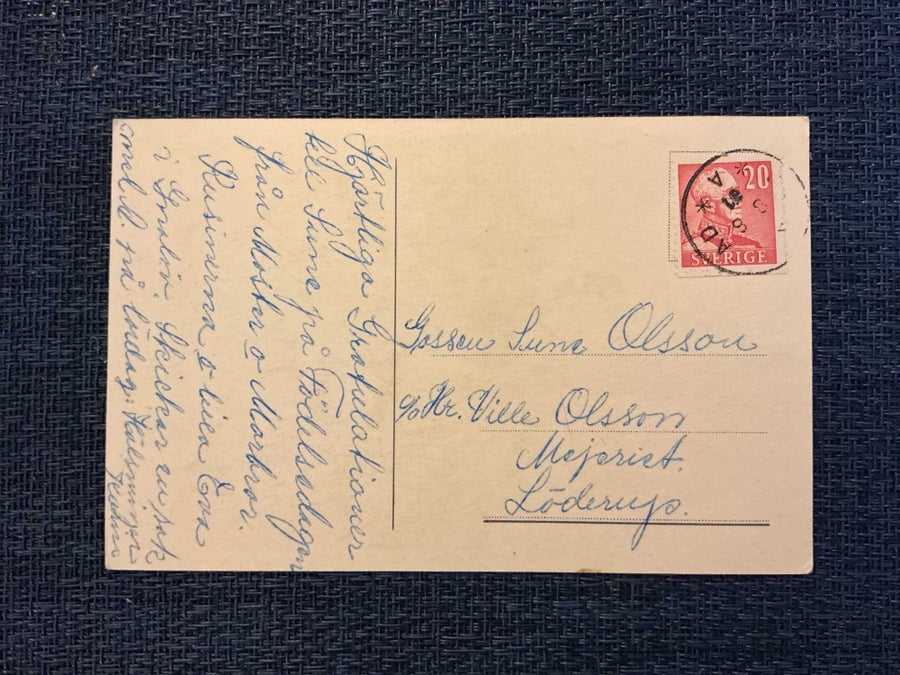 Hjärtliga Gratulationer
till Sune på Födelsedagen
från Moster o Morbror.
Kusinerna o lilla Eva
i Skickar en pak
med på lördag. Hälsningar
20
SVERIGE
AD
8
A
Gossen Sune Olsson
c/o Hr. Ville Olsson
Mejerist.
Löderup.